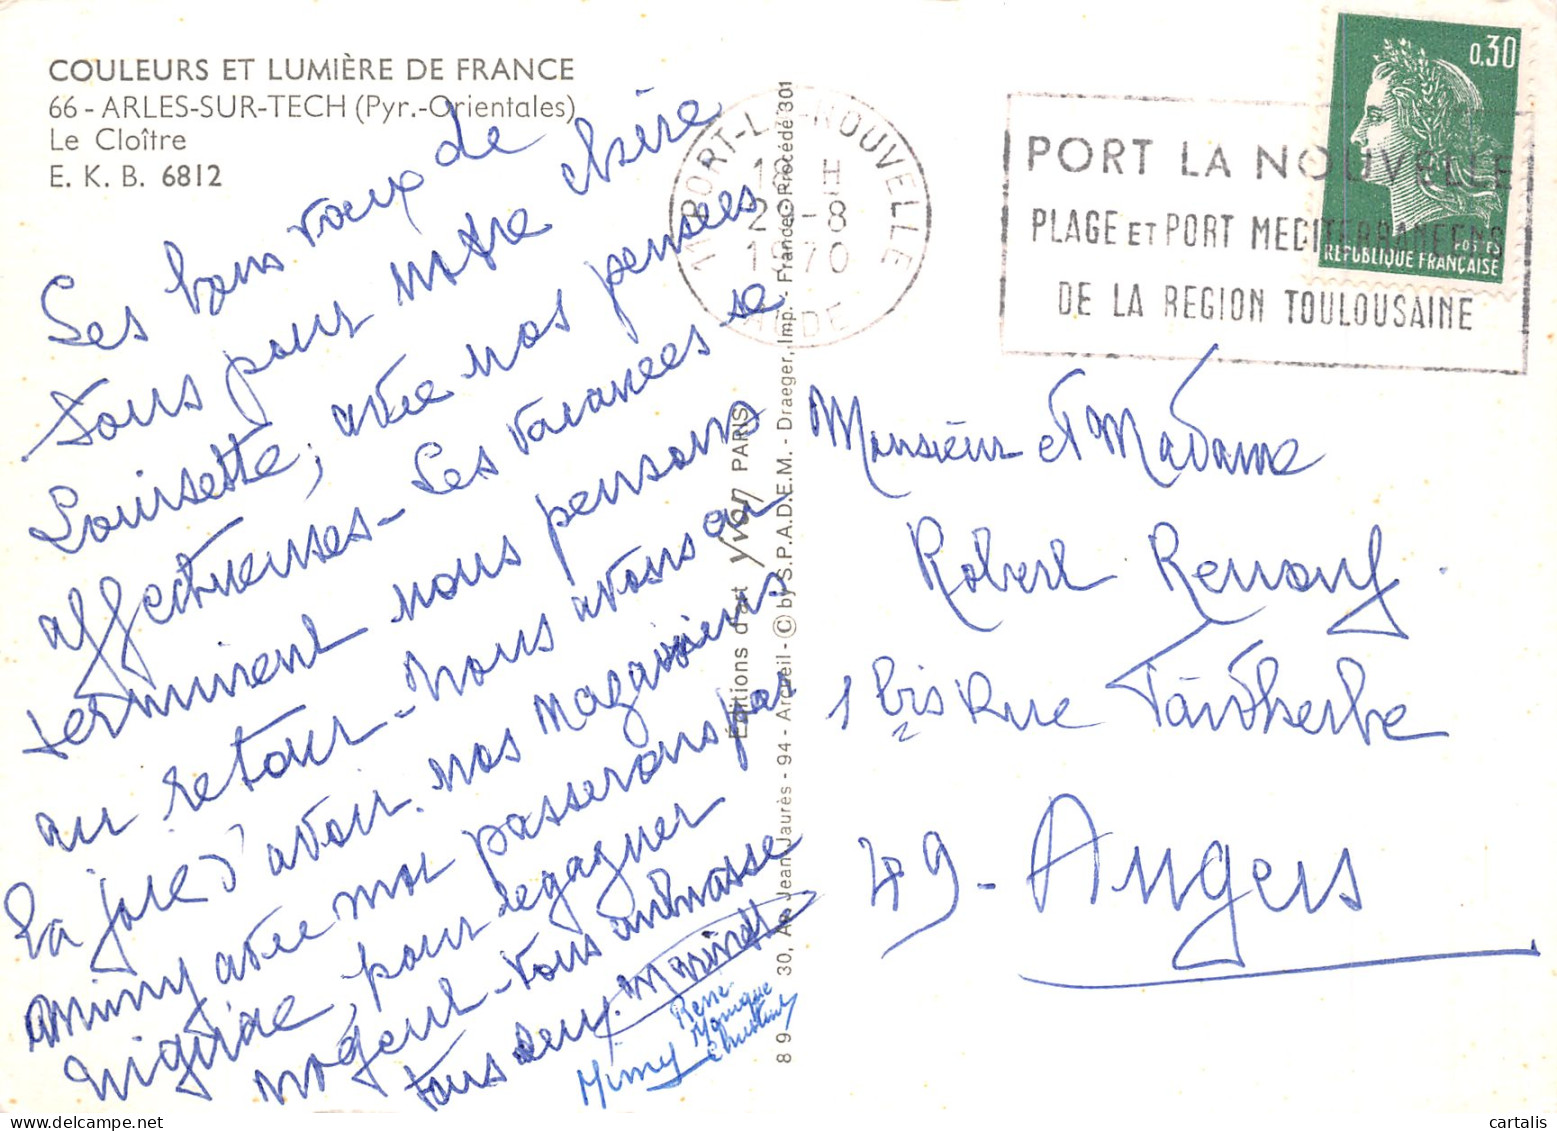 COULEURS ET LUMIÈRE DE FRANCE
66 - ARLES-SUR-TECH (Pyr.-Orientales)
Le Cloître
E. K. B. 6812
Les bons vœux de
tous pour notre chère
Louisette, avec nos pensées
affectueuses - Les vacances se
terminent nous pensons
au retour - nous avons eu
la joie d'avoir nos
Mimy avec moi passerons par
pour regagner
nogent - vous embrasse
tous deux. Marinette
René
Monique
Christine
Mimy
Éditions d'art Yvon PARIS
8 9 30, Av. Jean-Jaurès - 94 - Arcueil - © by S.P.A.D.E.M. - Draeger, Imp. - France - Procédé 301
11 PORT-LA-NOUVELLE
18 H
-8
1970
AUDE
PORT LA NOUVELLE
PLAGE ET PORT MEDITERRANEENS
DE LA REGION TOULOUSAINE
0,30
POSTES
REPUBLIQUE FRANÇAISE
Monsieur et Madame
Robert Renouf
1 bis Rue Faidherbe
49 - Angers
cartalis